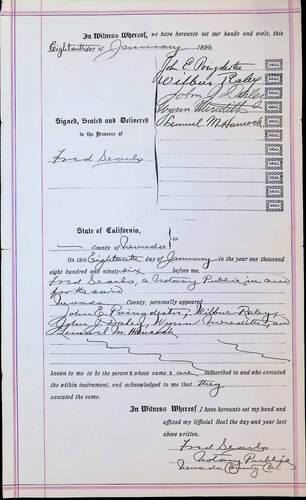 In Witness Whereof, we have hereunto set our hands and seals, this
Eighteenth day of January 1896
John E. Poingdestre SEAL
Wilbur Raley SEAL
John J Daley SEAL
Wynn Meredith SEAL
Lemuel M. Hancock SEAL
SEAL
SEAL
SEAL
SEAL
Signed, Sealed and Delivered
in the Presence of
Fred Searls
State of California,
County of Nevada ss
On this Eighteenth day of January in the year one thousand
eight hundred and ninety six before me,
Fred Searls, a Notary Public in and
for the said
Nevada County, personally appeared
John E. Poingdestre, Wilbur Raley,
John J. Daley, Wynn Meredith, and
Lemuel M. Hancock
known to me to be the person s whose name s are subscribed to and who executed
the within instrument, and acknowledged to me that they
executed the same.
In Witness Whereof I have hereunto set my hand and
affixed my Official Seal the day and year last
above written.
Fred Searls
Notary Public
Nevada County Cal